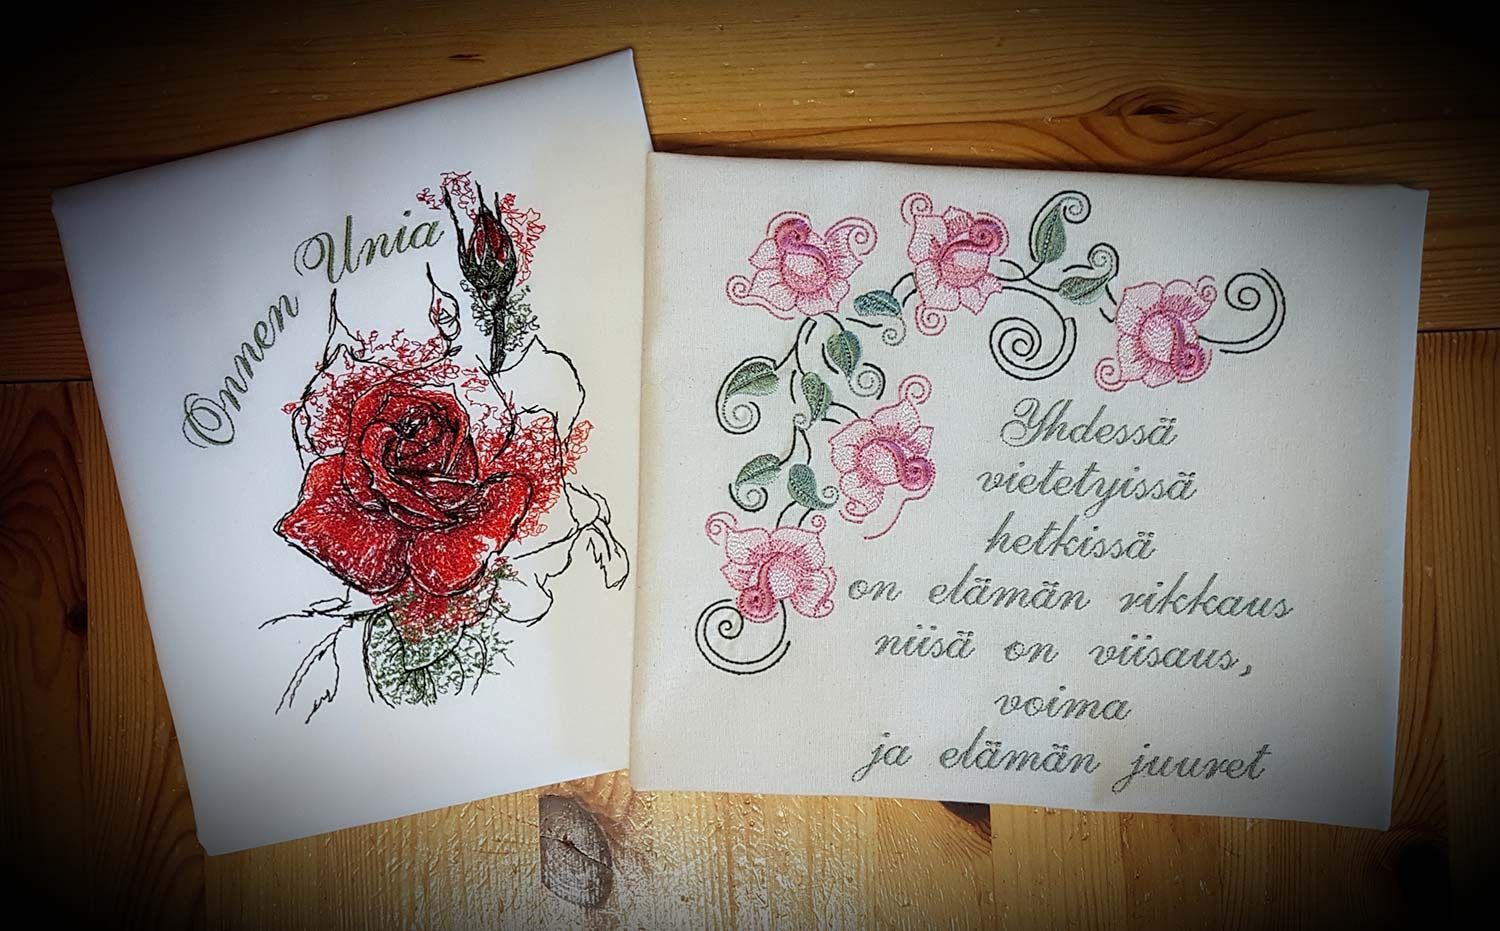 Onnen Unia
Yhdessä
vietetyissä
hetkissä
on elämän rikkaus
niisä on viisaus,
voima
ja elämän juuret